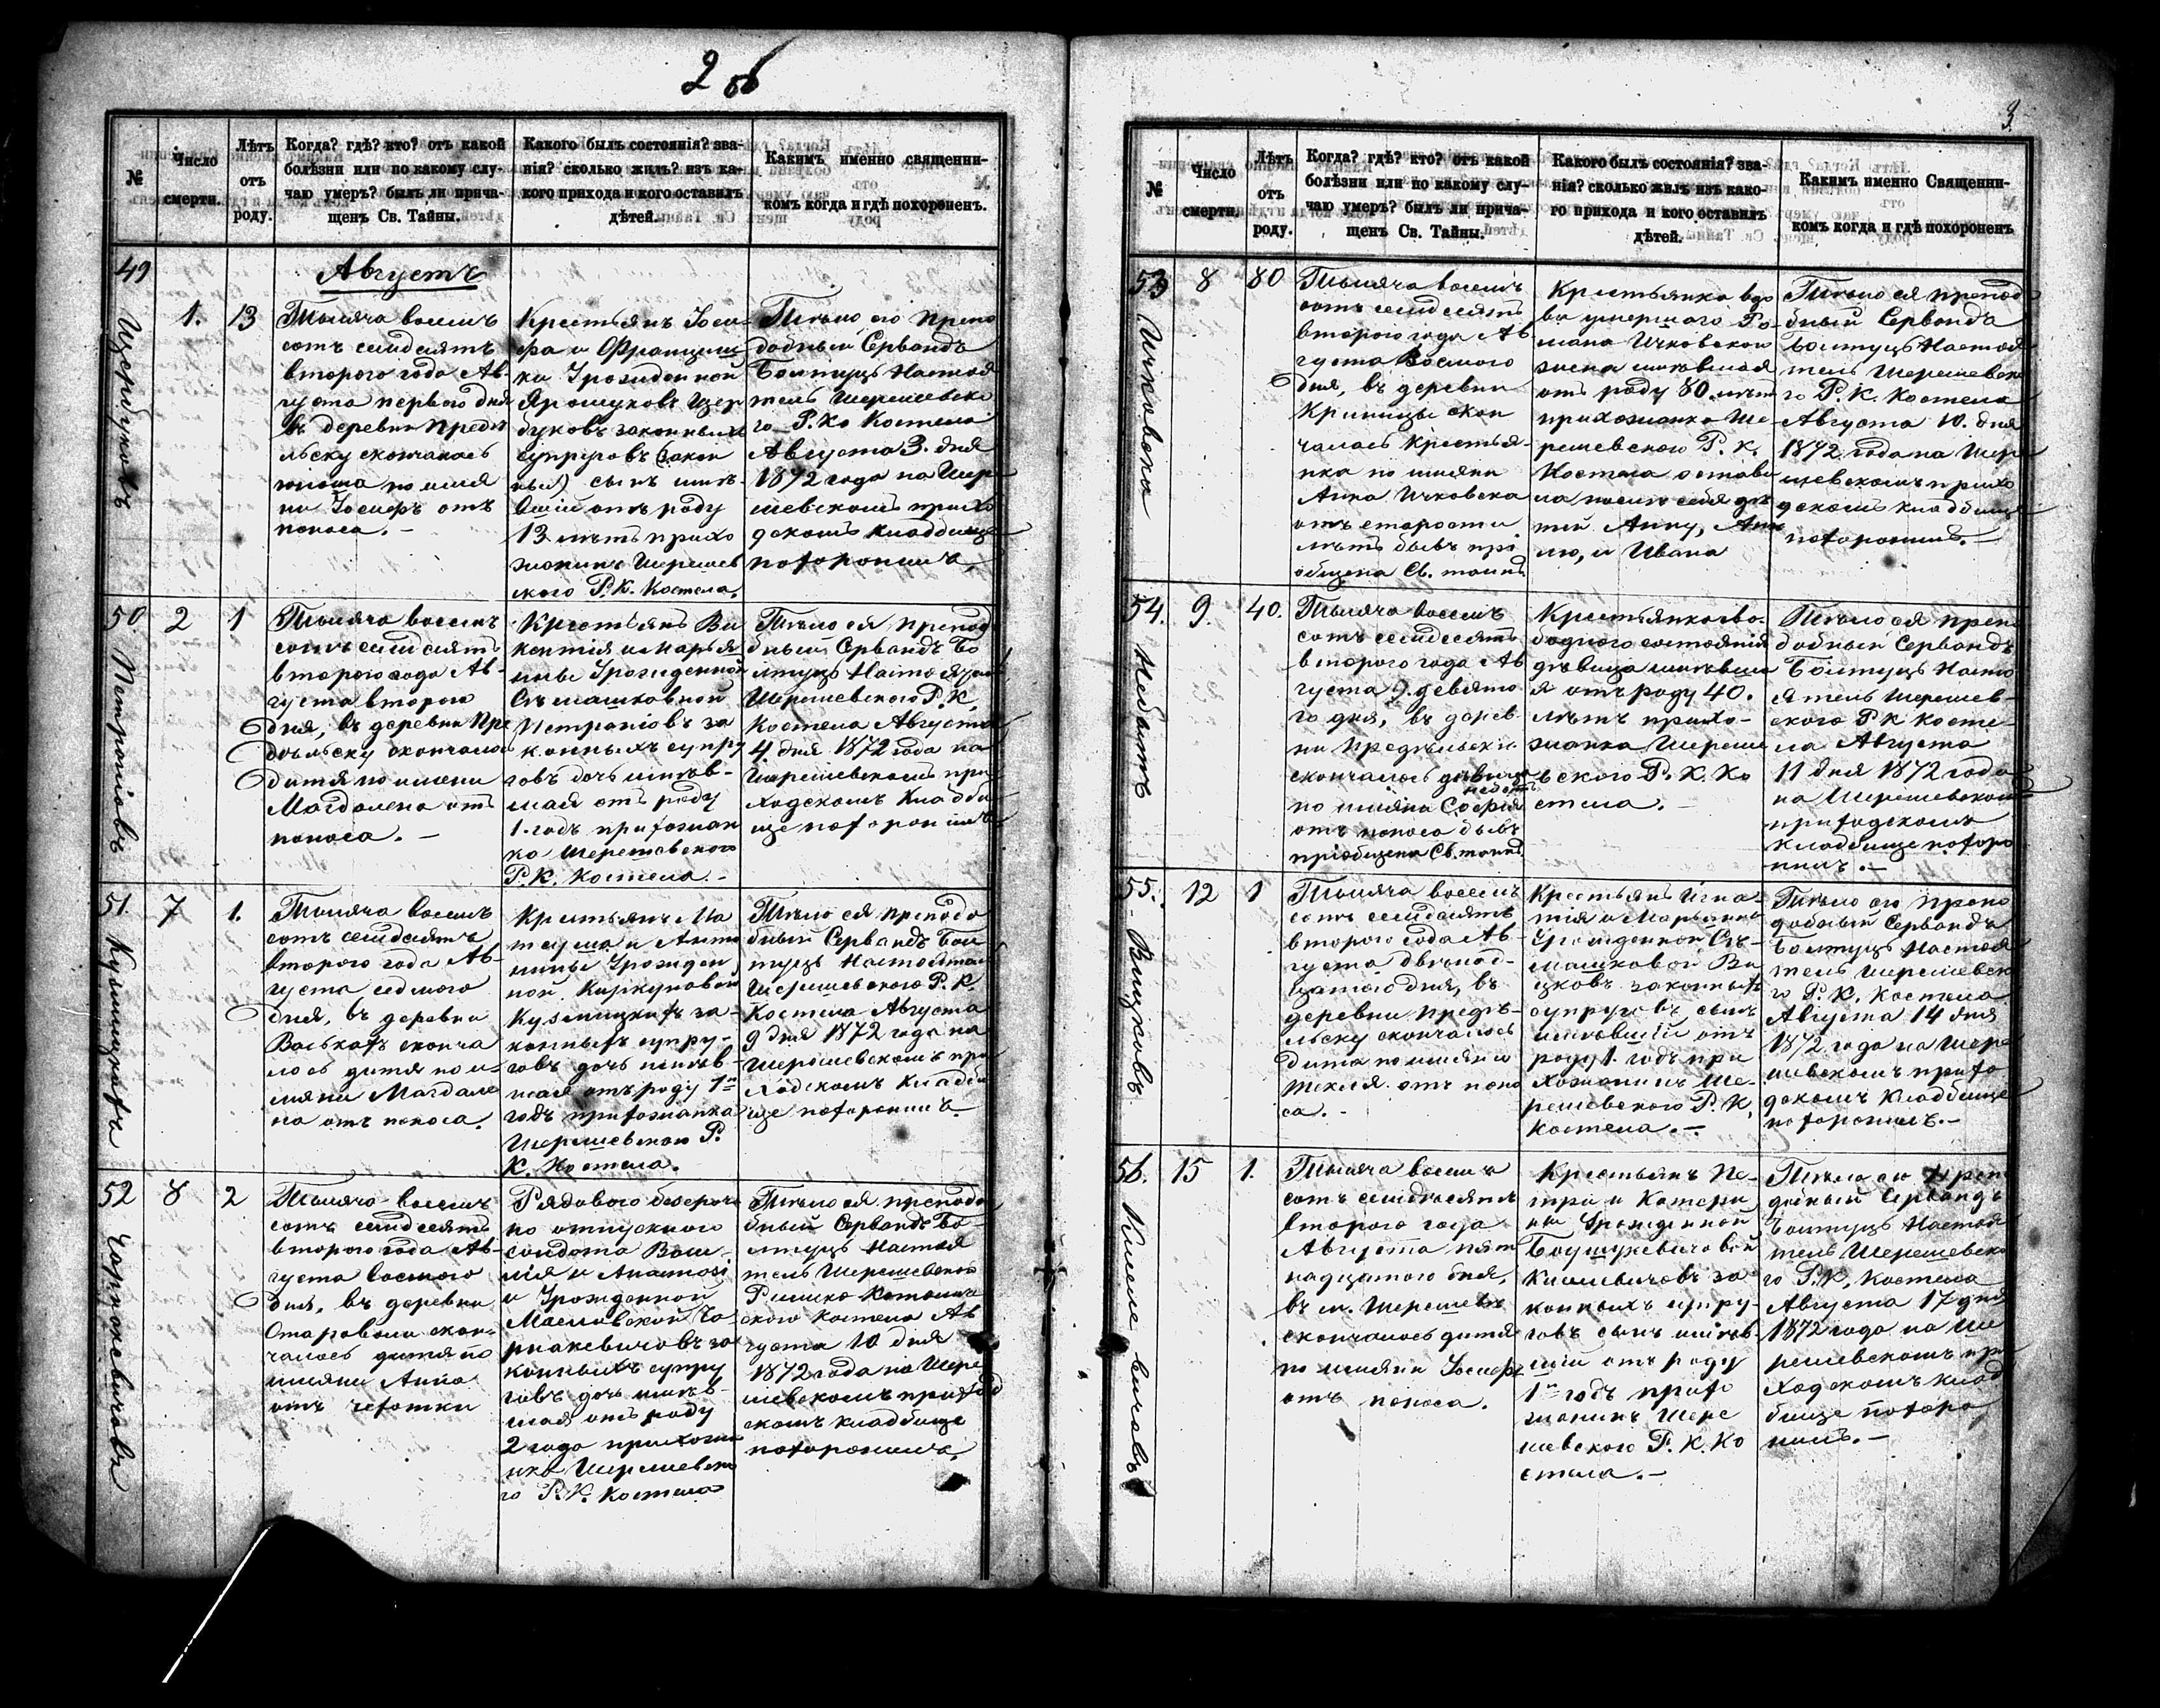 2 об
№
Число
смерти.
Лѣтъ
отъ
роду.
Когда? гдѣ? кто? отъ какой
болѣзни или по какому слу-
чаю умеръ? былъ ли прича-
щенъ Св. Тайны.
Какого былъ состоянія? зва-
нія? сколько жилъ? изъ ка-
кого прихода и кого оставилъ
дѣтей.
Какимъ именно священни-
комъ когда и гдѣ похороненъ.
Августъ
49
1.
13
Тысяча восемь
сотъ семдесятъ
второго года Ав-
густа первого дня
въ деревни
скончалось
по имя
ни Іосифъ отъ
поноса. —
Крестьянъ Іоси-
фа и Францыш
ки Урожденной
законныхъ
супруговъ
сынъ имѣв
шій отъ роду
13 лѣтъ прихо
жанинъ Шерешев
ского Р. К. Костела.
Тѣло его препо
добный Сервандъ
Болтуць Настоя
тель Шерешевско
го Р. Ко Костела
Августа 3. дня
1872 года на Шере
шевскомъ прихо
дскомъ кладбище
похоронилъ.
50.
Петроніовъ
2
1
Тысяча восемь
сотъ семдесятъ
второго года Ав-
густа второго
дня, въ деревни Пре
дѣльску скончалось
дитя по имени
Магдалена отъ
поноса. —
Крестьянъ Ви
кентія и Марья
нны Урожденной
Сѣмашковной
Петроніовъ за
конныхъ супру
говъ дочь имѣв-
шая отъ роду
1. годъ прихожан
ка Шерешевского
Р. К. Костела. —
Тѣло ея препод
бный Сервандъ Бо
лтуць Настоятель
Шерешевского Р. К.
Костела Августа
4 дня 1872 года на
Шерешевскомъ при
ходскомъ кладби
ще похоронилъ
51.
Кузьмицкихъ
7
1.
Тысяча восемь
сотъ семдесятъ
второго года Ав-
густа седмого
дня, въ деревни
Васькахъ сконча
лось дитя по и-
мяни Магдале
на отъ поноса.
Крестьянъ Ма
теуша и Анто
нины Урожден
ной
Кузьмицкихъ за-
конныхъ супру-
говъ дочь имѣв-
шая отъ роду 1н
годъ прихожанка
Шерешевского Р.
К. Костела.
Тѣло ея преподо
бный Сервандъ Бол
туць Настоятель
Шерешевского Р. К.
Костела Августа
9 дня 1872 года на
Шерешевскомъ при
ходскомъ кладби
ще похоронилъ.
52
8
2
Тысяча восемь
сотъ семдесятъ
второго года Ав-
густа восмого
дня, въ деревни
скон-
чалось дитя по
имяни Анна
отъ чехотки
Рядового безсроч
но отпускного
солдата Васи-
лія и Анастазі
и Урожденной
Масловской Ча
рнакевичовъ за
конныхъ супру
говъ дочь имѣв-
шая отъ роду
2 года прихожа
нка Шерешевско
го Р. К. Костела
Тѣло ея преподо
бный Сервандъ Бо-
лтуць Настоя
тель Шерешевского
Римско Католич
ского Костела Ав
густа 10 дня
1872 года на Шере
шевскомъ приход
скомъ кладбище
похоронилъ.
3
№
Число
смерти.
Лѣтъ
отъ
роду.
Когда? гдѣ? кто? отъ какой
болѣзни или по какому слу-
чаю умеръ? былъ ли прича-
щенъ Св. Тайны.
Какого былъ состоянія? зва-
нія? сколько жилъ изъ како-
го прихода и кого оставилъ
дѣтей.
Какимъ именно Священни-
комъ когда и гдѣ похороненъ
53
Ичковска
8
80
Тысяча восемь
сотъ семдесятъ
второго года Ав
густа Восмого
дня, въ деревни
Криницы скон
чалась крестья-
нка по имяни
Анна Ичковска
отъ старости
лѣтъ бывъ прі
общена Св. тайнъ
Крестьянка вдо
ва умершаго Ро-
мана Ичковского
жена имѣвшая
отъ роду 80. лѣтъ
прихожанка Ше-
решевского Р. К.
Костела остави
ла послѣ себя дѣ
тей Анну,
и Ивана
Тѣло ея препод
бный Сервандъ
Болтуць Настоя
тель Шерешевско
го Р. К. Костела
Августа 10. дня
1872 года на Шере
шевскомъ прихо
дскомъ кладбище
похоронилъ. —
54.
9.
40.
Тысяча восемь
сотъ семдесятъ
второго года Ав
густа 9. девято
го дня, въ дерев
ни Предѣльски
скончалась дѣвица
по имяни Софія
отъ поноса бывъ
пріобщена Св. тайнъ
Крестьянка сво-
бодного состоянія
дѣвица имѣвша
я отъ роду 40.
лѣтъ прихо-
жанка Шереше
вского Р. К. Ко
стела. —
Тѣло ея препо
добный Сервандъ
Болтуць Насто
ятель Шерешев-
ского Р К Косте
ла Августа
11 дня 1872 года
на Шерешевскомъ
приходскомъ
кладбище похоро
нилъ. —
55.
Вицковъ
12
1
Тысяча восемь
сотъ семдесятъ
второго года Ав-
густа двѣнад-
цатого дня, въ
деревни Предѣ-
льску скончалось
дитя по имяни
отъ поно
са. -
Крестьянъ Игна-
тія и Марьянны
Урожденной Сѣ-
машковой Ви
цковъ законныхъ
супруговъ, сынъ
имѣвшій отъ
роду 1. годъ при
хожанинъ Ше-
решевского Р. К.
Костела. —
Тѣло его препо
добный Сервандъ
Болтуць Настоя
тель Шерешевско
го Р. К. Костела
Августа 14 дня
1872 года на Шере
шевскомъ прихо
дскомъ кладбище
похоронилъ. —
56.
15
1.
Тысяча восемь
сотъ семдесятъ
второго года
Августа пят
надцатого дня,
въ м. Шерешевѣ
скончалось дитя
по имяни Іосифъ
отъ поноса.
Крестьянъ Пе-
тра и Катери
ны Урожденной
за
конныхъ супру-
говъ сынъ имѣв-
шій отъ роду
1н годъ прихо
жанинъ Шере
шевского Р. К. Ко
стела. —
Тѣло его препо
добный Сервандъ
Болтуць Настоя
тель Шерешевско
го Р. К. Костела
Августа 17 дня
1872 года на Ше
решевскомъ при
ходскомъ клад
бище похоро
нилъ. —